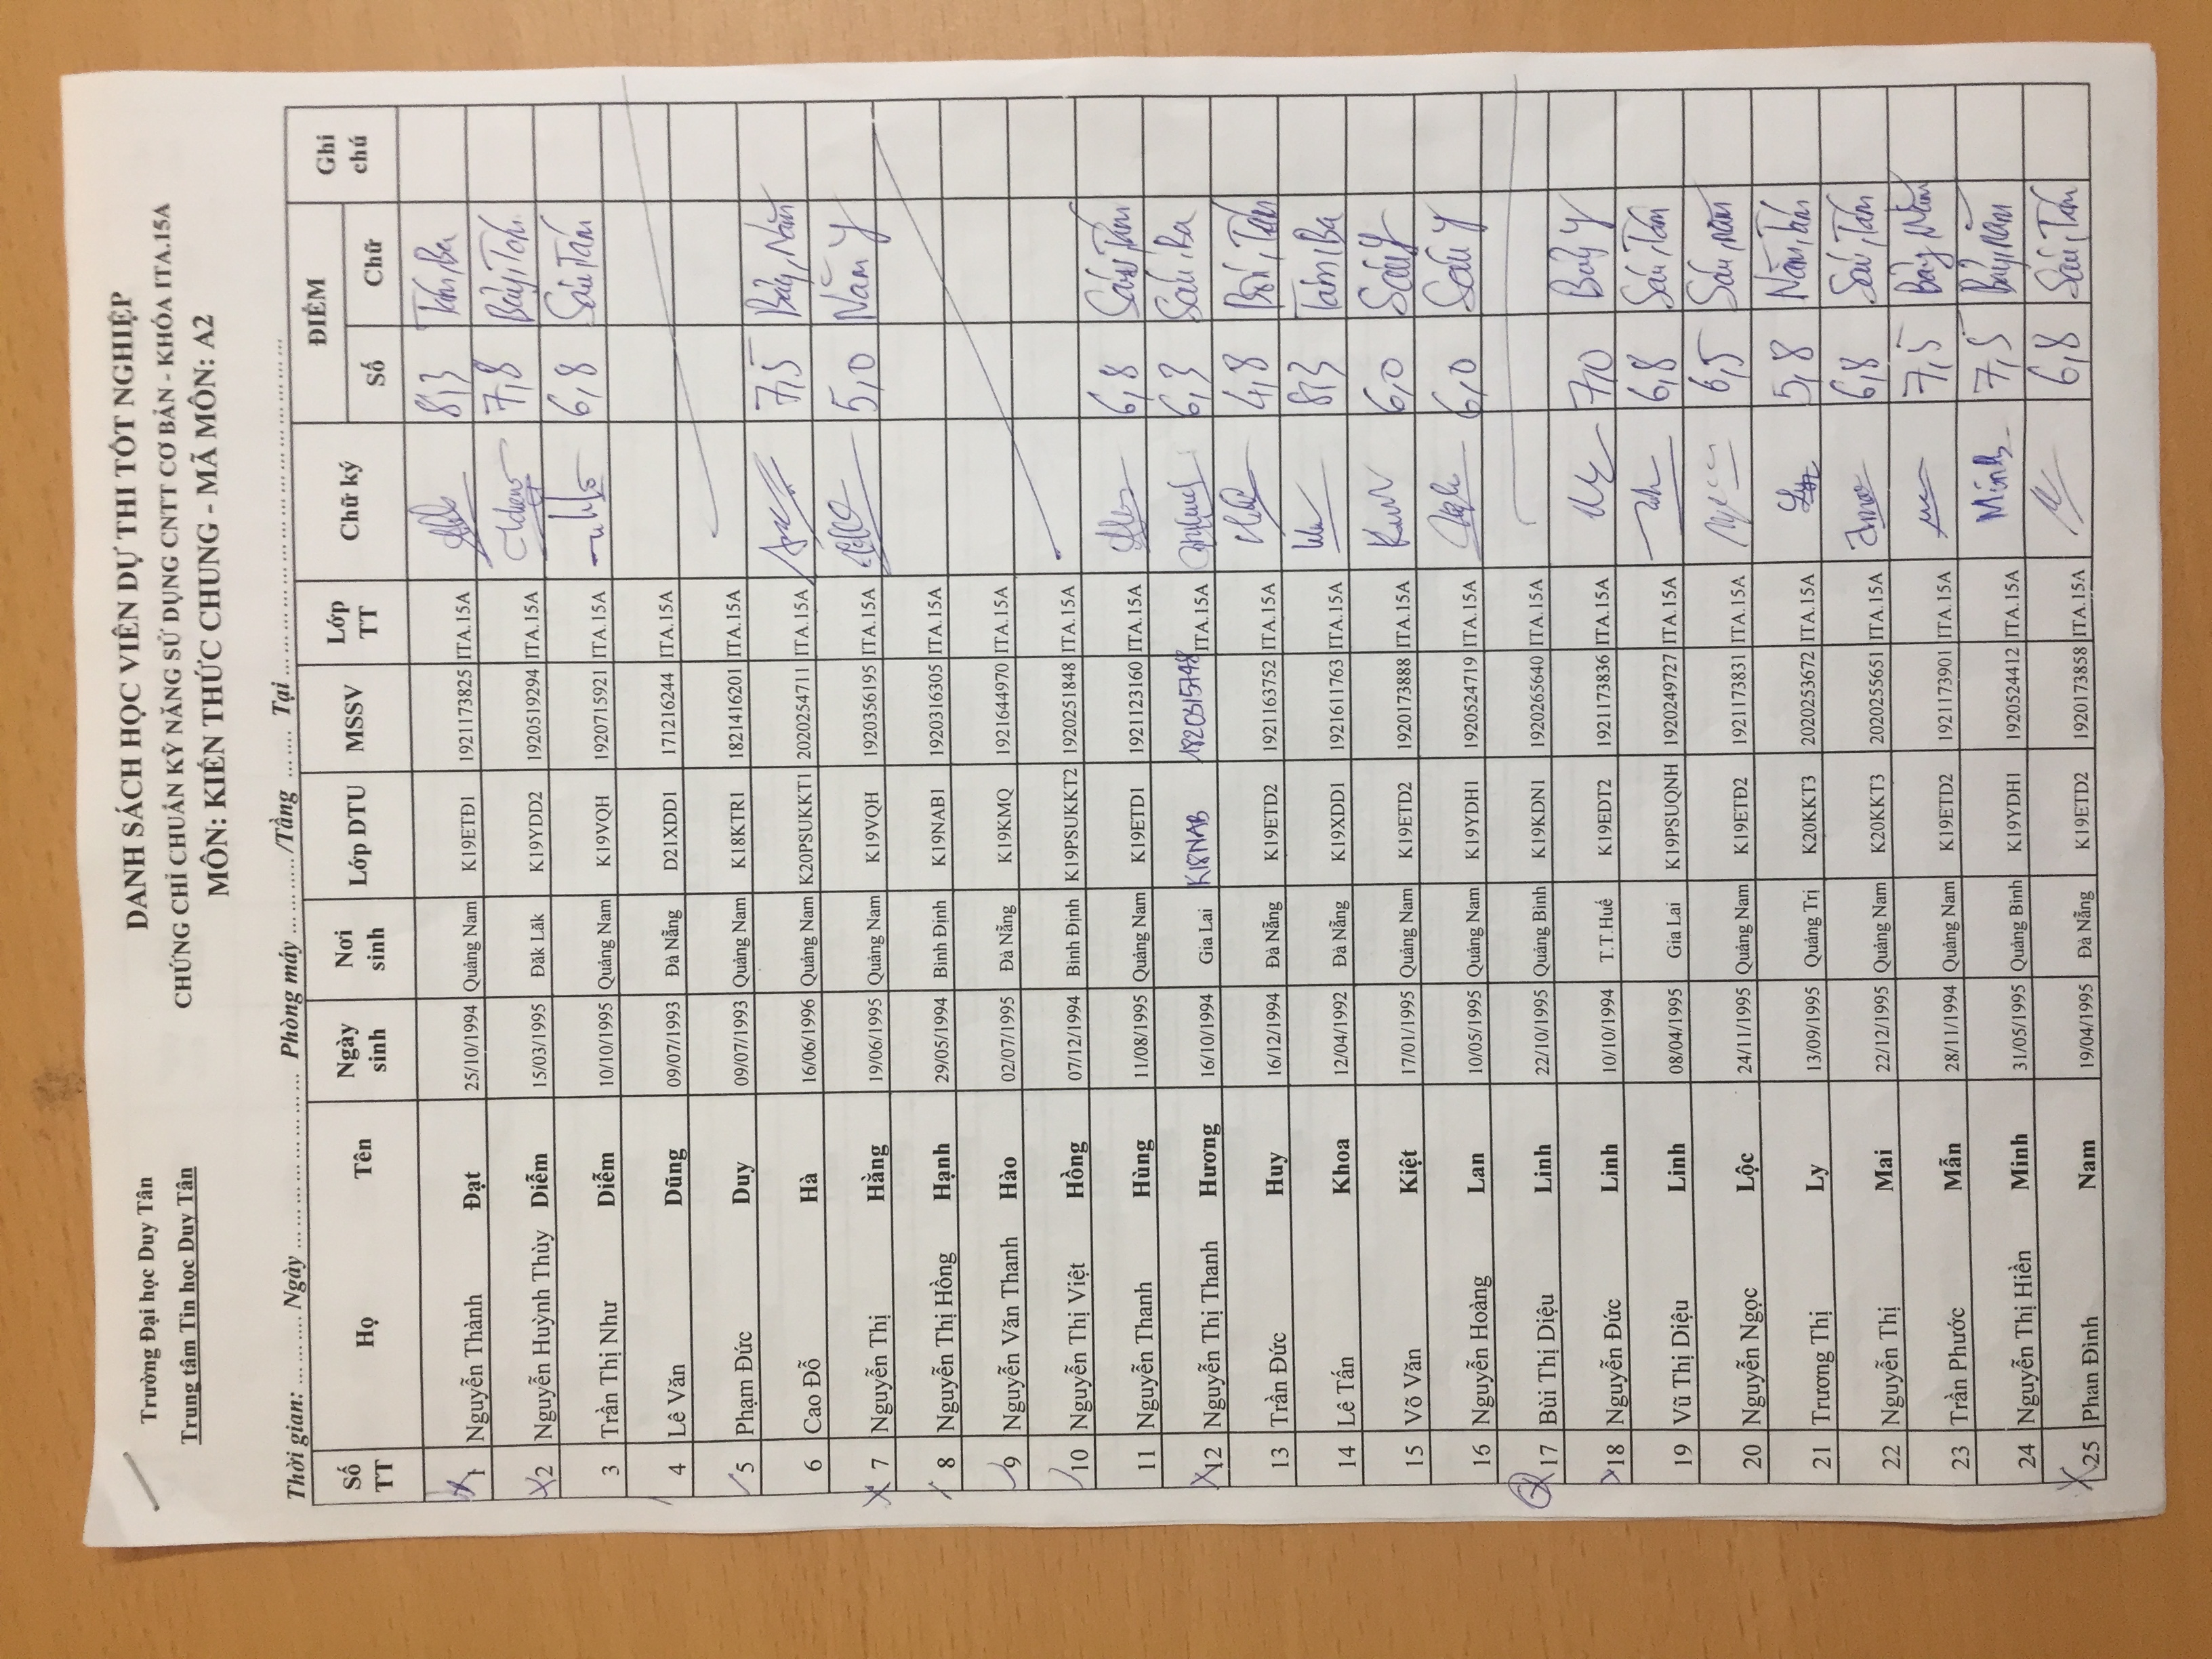 Trường Đại học Duy Tân
Trung tâm Tin học Duy Tân
DANH SÁCH HỌC VIÊN DỰ THI TỐT NGHIỆP
CHỨNG CHỈ CHUẨN KỸ NĂNG SỬ DỤNG CNTT CƠ BẢN - KHÓA ITA.15A
MÔN: KIẾN THỨC CHUNG - MÃ MÔN: A2
Thời gian: ... Ngày ... Phòng máy ... /Tầng ... Tại ...
Số TT Họ Tên Ngày sinh Nơi sinh Lớp DTU MSSV Lớp TT Chữ ký ĐIỂM Số Chữ Ghi chú
1 Nguyễn Thành Đạt 25/10/1994 Quảng Nam K19ETĐ1 1921173825 ITA.15A 8,3 Tám, Ba
2 Nguyễn Huỳnh Thùy Diễm 15/03/1995 Đăk Lăk K19YDD2 1920519294 ITA.15A 7,8 Bảy, Tám
3 Trần Thị Như Diễm 10/10/1995 Quảng Nam K19VQH 1920715921 ITA.15A 6,8 Sáu, Tám
4 Lê Văn Dũng 09/07/1993 Đà Nẵng D21XDD1 171216244 ITA.15A
5 Phạm Đức Duy 09/07/1993 Quảng Nam K18KTR1 1821416201 ITA.15A
6 Cao Đỗ Hà 16/06/1996 Quảng Nam K20PSUKKT1 2020254711 ITA.15A 7,5 Bảy, Năm
7 Nguyễn Thị Hằng 19/06/1995 Quảng Nam K19VQH 1920356195 ITA.15A 5,0 Năm y
8 Nguyễn Thị Hồng Hạnh 29/05/1994 Bình Định K19NAB1 1920316305 ITA.15A
9 Nguyễn Văn Thanh Hào 02/07/1995 Đà Nẵng K19KMQ 1921644970 ITA.15A
10 Nguyễn Thị Việt Hồng 07/12/1994 Bình Định K19PSUKKT2 1920251848 ITA.15A
11 Nguyễn Thanh Hùng 11/08/1995 Quảng Nam K19ETD1 1921123160 ITA.15A 6,8 Sáu, Tám
12 Nguyễn Thị Thanh Hương 16/10/1994 Gia Lai K18NAB 1820315748 ITA.15A 6,3 Sáu, Ba
13 Trần Đức Huy 16/12/1994 Đà Nẵng K19ETD2 1921163752 ITA.15A 4,8 Bốn, Tám
14 Lê Tấn Khoa 12/04/1992 Đà Nẵng K19XDD1 1921611763 ITA.15A 8,3 Tám, Ba
15 Võ Văn Kiệt 17/01/1995 Quảng Nam K19ETD2 1920173888 ITA.15A 6,0 Sáu y
16 Nguyễn Hoàng Lan 10/05/1995 Quảng Nam K19YDH1 1920524719 ITA.15A 6,0 Sáu y
17 Bùi Thị Diệu Linh 22/10/1995 Quảng Bình K19KDN1 1920265640 ITA.15A
18 Nguyễn Đức Linh 10/10/1994 T.T.Huế K19EDT2 1921173836 ITA.15A 7,0 Bảy y
19 Vũ Thị Diệu Linh 08/04/1995 Gia Lai K19PSUQNH 1920249727 ITA.15A 6,8 Sáu, Tám
20 Nguyễn Ngọc Lộc 24/11/1995 Quảng Nam K19ETĐ2 1921173831 ITA.15A 6,5 Sáu, năm
21 Trương Thị Ly 13/09/1995 Quảng Trị K20KKT3 2020253672 ITA.15A 5,8 Năm, Tám
22 Nguyễn Thị Mai 22/12/1995 Quảng Nam K20KKT3 2020255651 ITA.15A 6,8 Sáu, Tám
23 Trần Phước Mẫn 28/11/1994 Quảng Nam K19ETD2 1921173901 ITA.15A 7,5 Bảy, Năm
24 Nguyễn Thị Hiền Minh 31/05/1995 Quảng Bình K19YDH1 1920524412 ITA.15A Minh 7,5 Bảy, Năm
25 Phan Đình Nam 19/04/1995 Đà Nẵng K19ETD2 1920173858 ITA.15A 6,8 Sáu, Tám